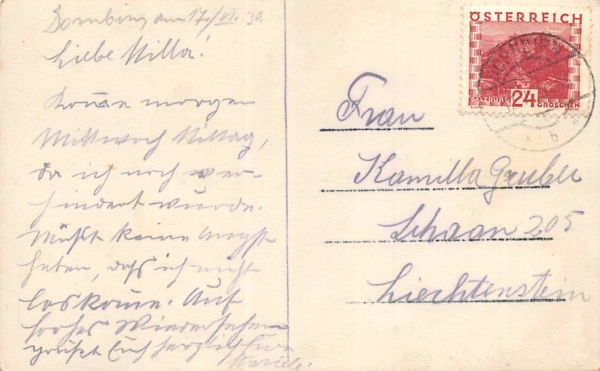 Dornbirn am 17./VI. 30.
Liebe Milla!
Komme morgen
Mittwoch Mittag,
da ich noch ver-
hindert wurde.
Müßt keine Angst
haben, daß ich nicht
loskomme. Auf
frohes Wiedersehen
grüßt Euch herzlich
ÖSTERREICH
SALZBURG 24 GROSCHEN
b
Frau
Kamilla Gruber
Schaan 205
Liechtenstein